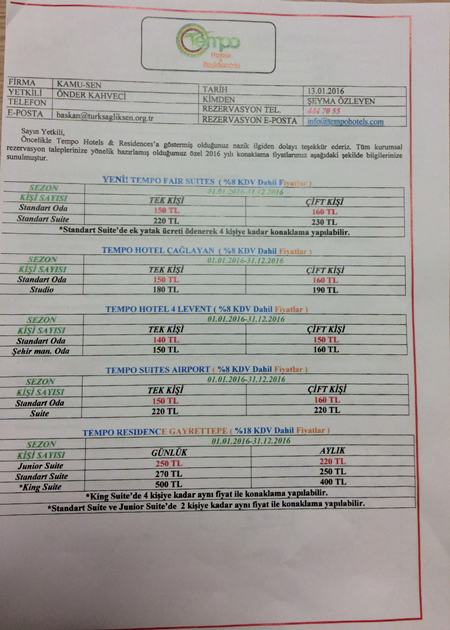 Tempo
Hotels
&
Residences
FİRMA KAMU-SEN TARİH 13.01.2016
YETKİLİ ÖNDER KAHVECİ KİMDEN ŞEYMA ÖZLEYEN
TELEFON REZERVASYON TEL. 444 70 55
E-POSTA baskan@turksagliksen.org.tr REZERVASYON E-POSTA info@tempohotels.com
Sayın Yetkili,
Öncelikle Tempo Hotels & Residences'a göstermiş olduğunuz nazik ilgiden dolayı teşekkür ederiz. Tüm kurumsal
rezervasyon taleplerinize yönelik hazırlamış olduğumuz özel 2016 yılı konaklama fiyatlarımız aşağıdaki şekilde bilgilerinize
sunulmuştur.
YENİ! TEMPO FAIR SUITES ( %8 KDV Dahil Fiyatlar )
SEZON 01.01.2016-31.12.2016
KİŞİ SAYISI TEK KİŞİ ÇİFT KİŞİ
Standart Oda 150 TL 160 TL
Standart Suite 220 TL 230 TL
*Standart Suite'de ek yatak ücreti ödenerek 4 kişiye kadar konaklama yapılabilir.
TEMPO HOTEL ÇAĞLAYAN ( %8 KDV Dahil Fiyatlar )
SEZON 01.01.2016-31.12.2016
KİŞİ SAYISI TEK KİŞİ ÇİFT KİŞİ
Standart Oda 150 TL 160 TL
Studio 180 TL 190 TL
TEMPO HOTEL 4 LEVENT ( %8 KDV Dahil Fiyatlar )
SEZON 01.01.2016-31.12.2016
KİŞİ SAYISI TEK KİŞİ ÇİFT KİŞİ
Standart Oda 140 TL 150 TL
Şehir man. Oda 150 TL 160 TL
TEMPO SUITES AIRPORT ( %8 KDV Dahil Fiyatlar )
SEZON 01.01.2016-31.12.2016
KİŞİ SAYISI TEK KİŞİ ÇİFT KİŞİ
Standart Oda 150 TL 160 TL
Suite 220 TL 220 TL
TEMPO RESIDENCE GAYRETTEPE ( %18 KDV Dahil Fiyatlar )
SEZON 01.01.2016-31.12.2016
KİŞİ SAYISI GÜNLÜK AYLIK
Junior Suite 250 TL 220 TL
Standart Suite 270 TL 250 TL
*King Suite 500 TL 400 TL
*King Suite'de 4 kişiye kadar aynı fiyat ile konaklama yapılabilir.
*Standart Suite ve Junior Suite'de 2 kişiye kadar aynı fiyat ile konaklama yapılabilir.